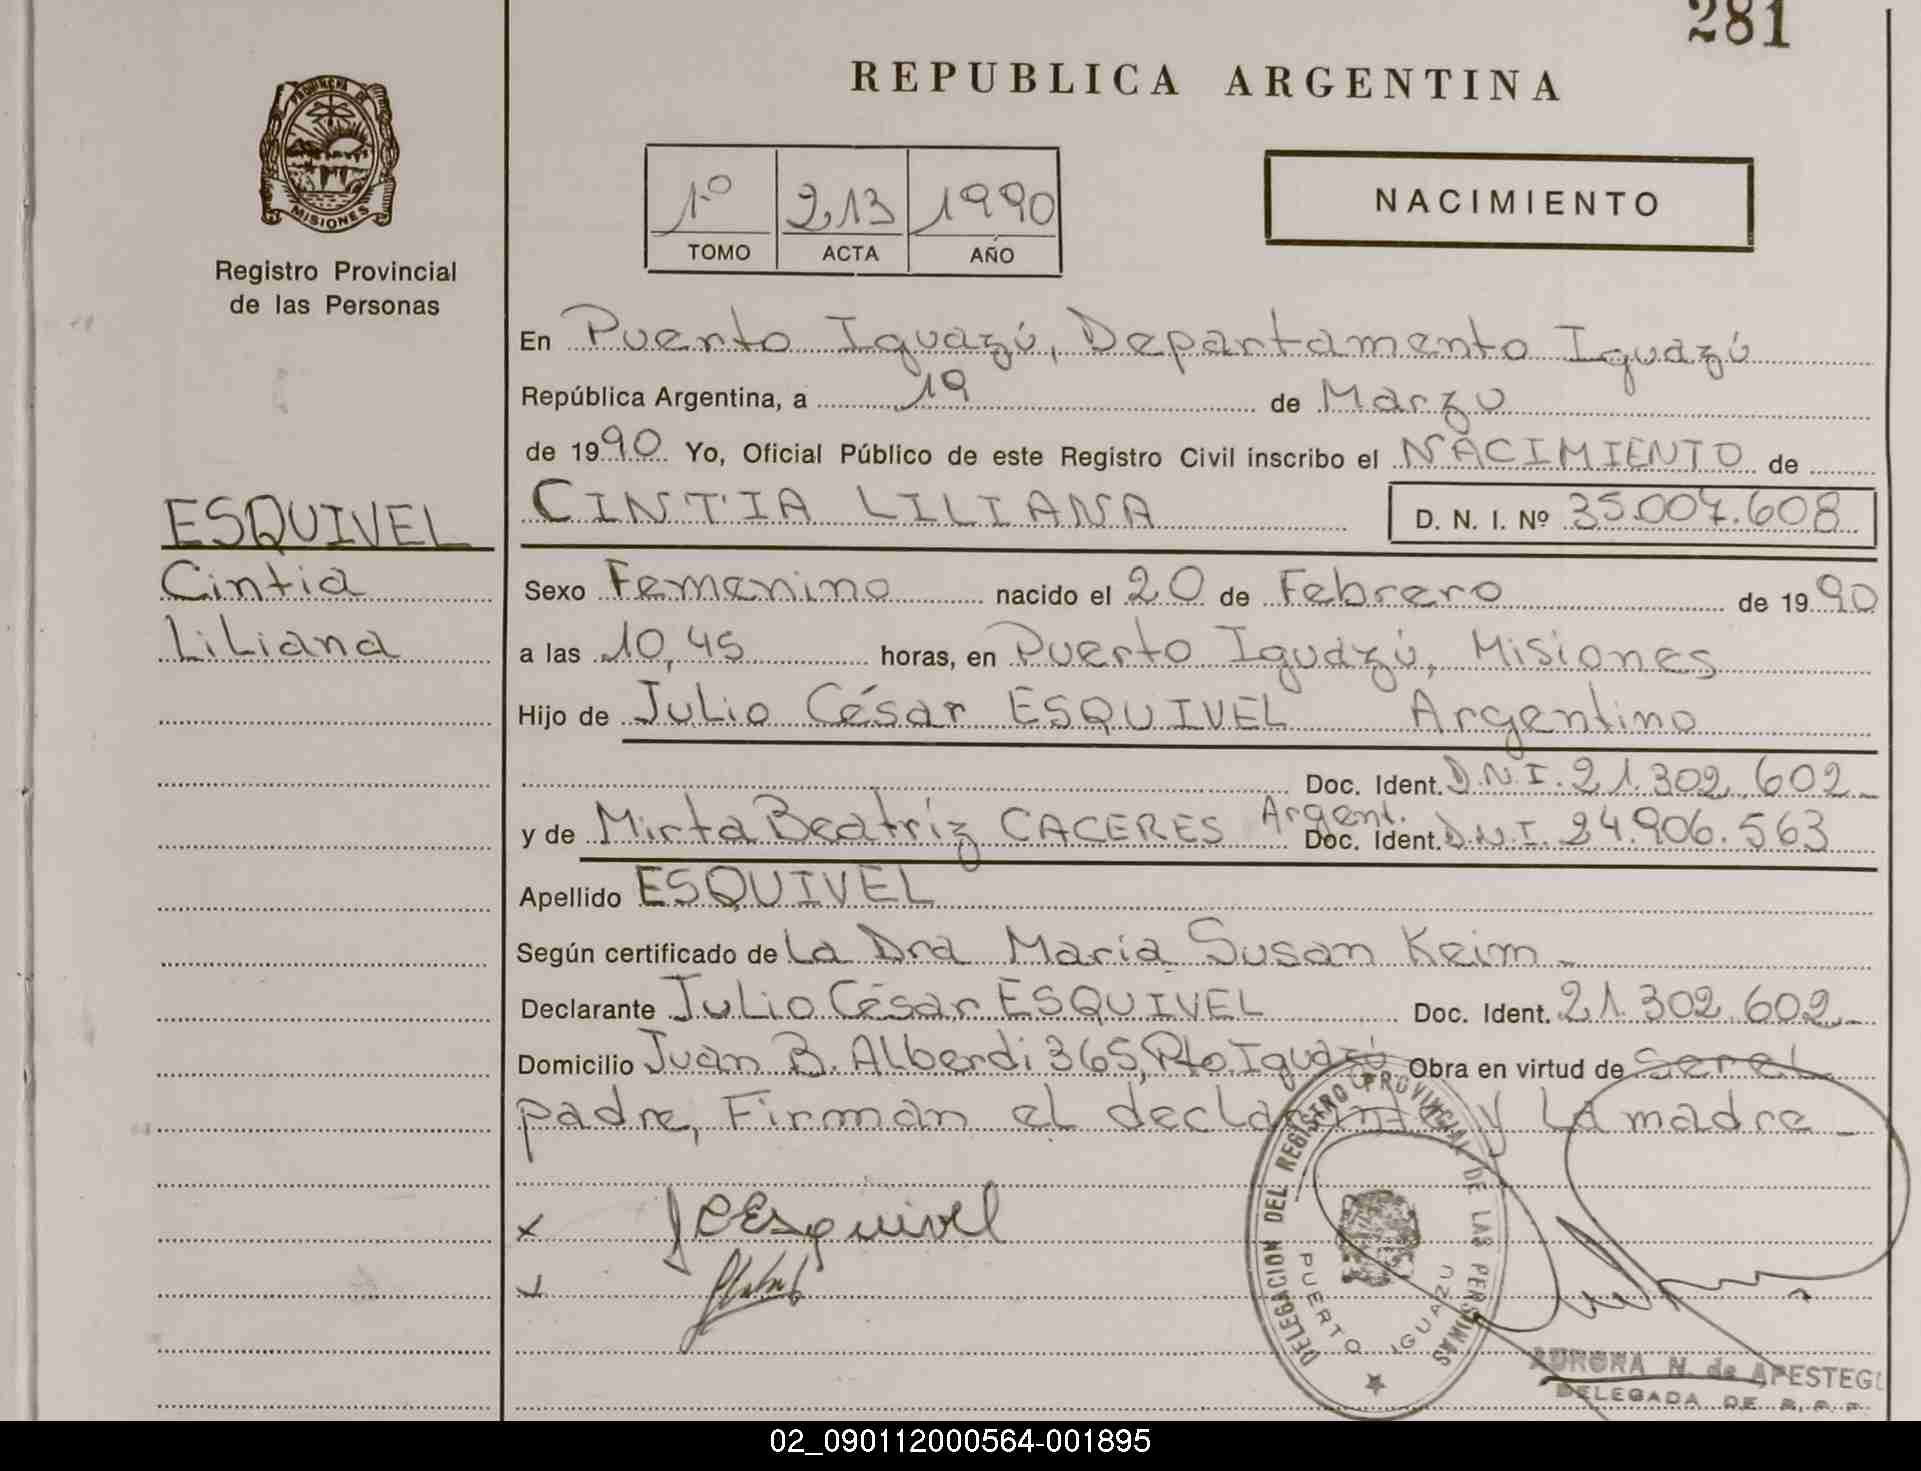 281
REPUBLICA ARGENTINA
PROVINCIA DE
MISIONES
Registro Provincial
de las Personas
1º 213 1990
TOMO ACTA AÑO
NACIMIENTO
En Puerto Iguazú, Departamento Iguazú
República Argentina, a 19 de Marzo
de 1990 Yo, Oficial Público de este Registro Civil inscribo el NACIMIENTO de
CINTIA LILIANA D. N. I. Nº 35.007.608
ESQUIVEL
Cintia
Liliana
Sexo Femenino nacido el 20 de Febrero de 1990
a las 10,45 horas, en Puerto Iguazú, Misiones
Hijo de Julio César ESQUIVEL Argentino
Doc. Ident. D.N.I. 21.302.602
y de Mirta Beatríz CACERES Argent. Doc. Ident. D.N.I. 24.906.563
Apellido ESQUIVEL
Según certificado de La Dra María Susan Keim
Declarante Julio César ESQUIVEL Doc. Ident. 21.302.602
Domicilio Juan B. Alberdi 365, Pto Iguazú Obra en virtud de ser el
padre, Firman el declarante y la madre
x JCEsquivel
DELEGACION DEL REGISTRO PROVINCIAL DE LAS PERSONAS
PUERTO IGUAZU
AURORA N. de APESTEGU
DELEGADA DE R. P. P.
02_090112000564-001895